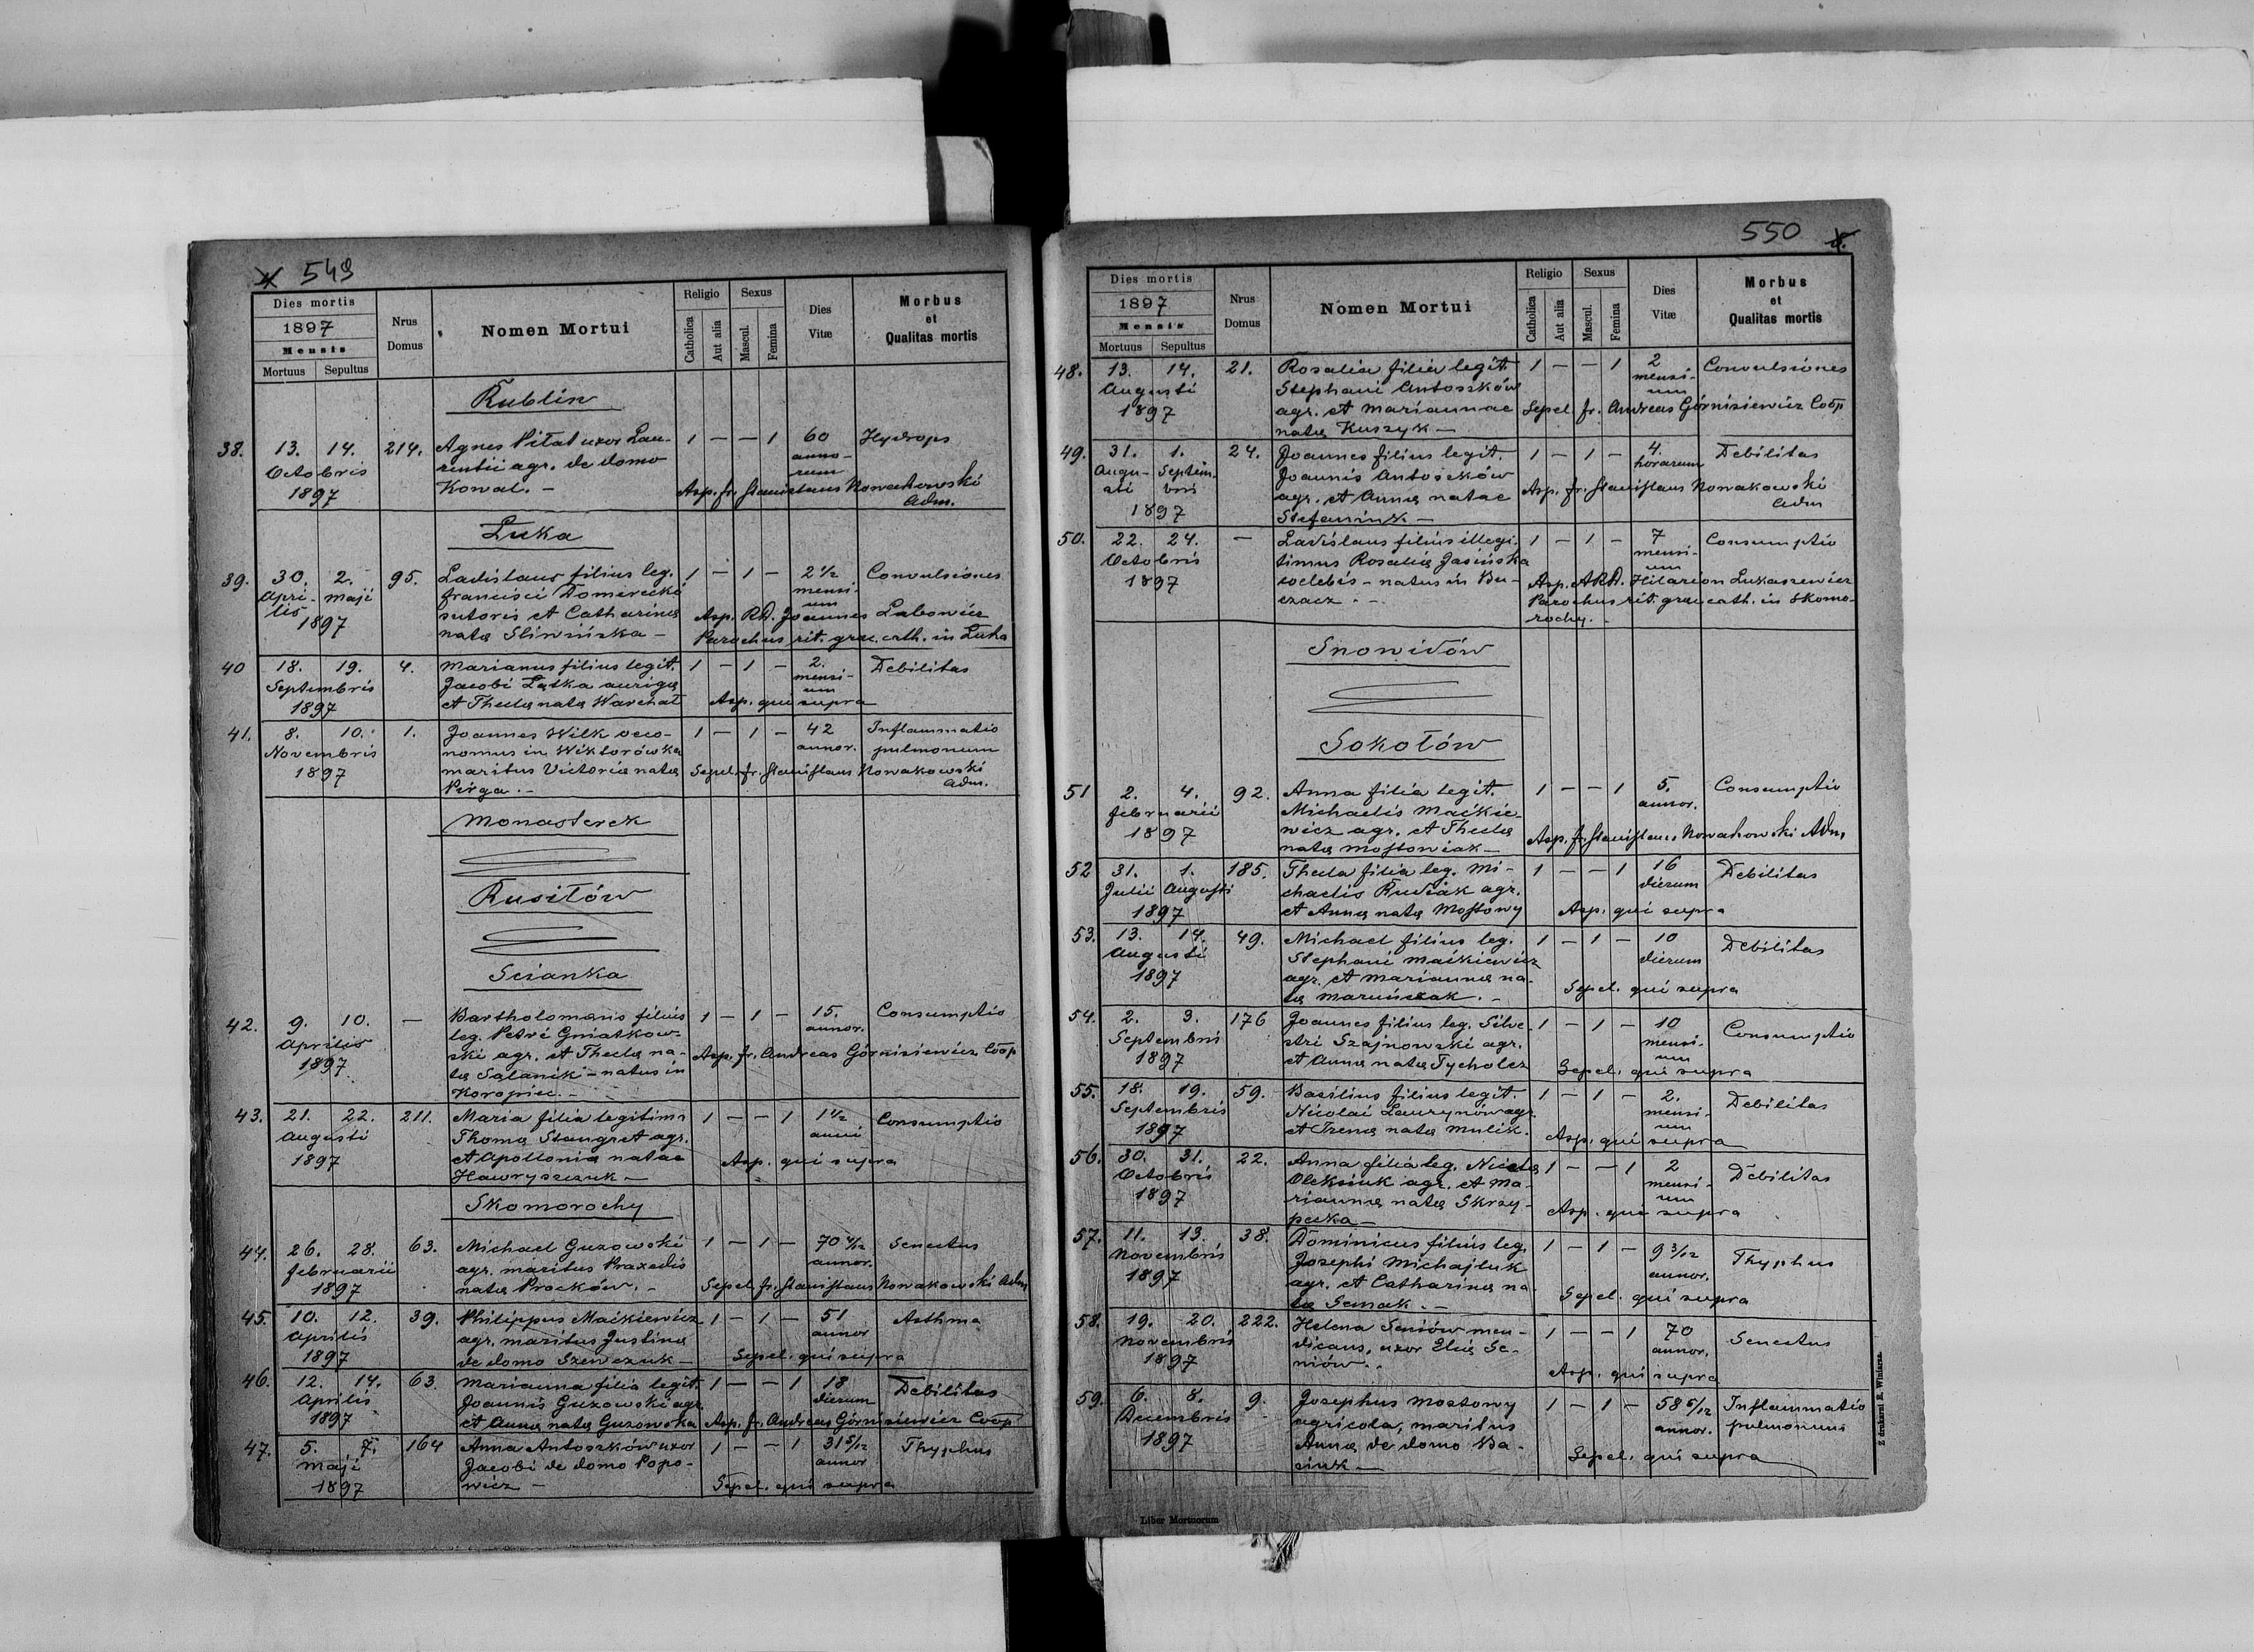 549
Dies mortis
1897
Mensis
Mortuus Sepultus
Nrus Domus
Nomen Mortui
Religio
Catholica
Aut alia
Sexus
Mascul.
Femina
Dies Vitæ
Morbus et Qualitas mortis
Rublin
38. 13. 14. 214. Agnes Piłat uxor Lau- 1 — — 1 60 Hydrops
Octobris rentii agr. de domo anno-
1897 Kowal. — rum
Asp. fr. Stanislaus Nowakowski
Adm.
Luka
39. 30. 2. 95. Ladislaus filius leg. 1 — 1 — 2 1/2 Convulsiones
Apri- Maji Francisci Domerecki mensi-
lis sutoris et Catharinæ um Asp. RD. Joannes Labowicz
1897 natæ Sliwińska — Parochus rit. græ. cath. in Luka
40 18. 19. 4. Marianus filius legit. 1 — 1 — 2. Debilitas
Septembris Jacobi Łątka aurigæ mensi-
um
1897 et Theclæ natæ Warchał Asp. qui supra
41. 8. 10. 1. Joannes Wilk oeco- 1 — 1 — 42 Inflammatio
Novembris nomus in Wiktorówka annor. pulmonum
1897 maritus Victoriæ natæ Sepel. fr. Stanislaus Nowakowski
Pirga. — Adm.
Monasterek
Rusiłów
Scianka
42. 9. 10. — Bartholomæus filius 1 — 1 — 15. Consumptio
Aprilis leg. Petri Gniatkow- annor.
1897 ski agr. et Theclæ na- Asp. fr. Andreas Górnisiewicz Coop
tæ Salanik — natus in
Koropiec. —
43. 21. 22. 211. Maria filia legitima 1 — — 1 1 1/2 Consumptio
Augusti Thomæ Stangret agr. anni
1897 et Apolloniæ natae Asp. qui supra
Hawryszczuk —
Skomorochy
44. 26. 28. 63. Michael Guzowski 1 — 1 — 70 4/12 Senectus
Februarii agr. maritus Praxedis annor.
1897 natæ Proćków. — Sepel. fr. Stanislaus Nowakowski Adm
45. 10. 12. 39. Philippus Maćkiewicz 1 — 1 — 51 Asthma
Aprilis agr. maritus Justinæ annor
1897 de domo Szewczuk — Sepel. qui supra
46. 12. 14. 63. Marianna filia legit. 1 — — 1 18 Debilitas
Aprilis Joannis Guzowski agr. dierum
1897 et Annæ natæ Guzowska Asp. fr. Andreas Górnisiewicz Coop
47. 5. 7. 164 Anna Antoszków uxor 1 — — 1 31 5/12 Thyphus
Maji Jacobi de domo Popo- annor
1897 wicz — Sepel. qui supra
550
Dies mortis
1897
Mensis
Mortuus Sepultus
Nrus Domus
Nomen Mortui
Religio
Catholica
Aut alia
Sexus
Mascul.
Femina
Dies Vitæ
Morbus et Qualitas mortis
48. 13. 14. 21. Rosalia filia legit. 1 — — 1 2 Convulsiones
Augusti Stephani Antoszków mensi-
um
1897 agr. et Mariannae Sepel. fr. Andreas Górnisiewicz Coop
natæ Kuszyk —
49. 31. 1. 24. Joannes filius legit. 1 — 1 — 4. Debilitas
Augu- Septem- Joannis Antosików horarum
sti bris agr. et Annæ natae Asp. fr. Stanislaus Nowakowski
1897 Stefaniuk. — Adm
50. 22. 24. — Ladislaus filius illegi- 1 — 1 — 7 Consumptio
Octobris timus Rosaliæ Jasińska mensi-
um
1897 coelebis — natus in Bu- Asp. ARD. Hilarion Lukaszewicz
czacz. — Parochus rit. græ. cath. in Skomo-
rochy. —
Snowidów
Sokołów
51 2. 4. 92. Anna filia legit. 1 — — 1 5. Consumptio
Februarii Michaelis Maćkie- annor.
1897 wicz agr. et Theclæ Asp. fr. Stanislaus Nowakowski Adm.
natæ Mostowiak —
52 31. 1. 185. Thecla filia leg. Mi- 1 — — 1 16 Debilitas
Julii Augusti chaelis Rudiak agr. dierum
1897 et Annæ natæ Mostowy Asp. qui supra
53. 13. 14. 49. Michael filius leg. 1 — 1 — 10 Debilitas
Augusti Stephani Maćkiewicz dierum
1897 agr. et Mariannæ na- Sepel. qui supra
tæ Maruńczak. —
54. 2. 3. 176 Joannes filius leg. Silve- 1 — 1 — 10 Consumptio
Septembris stri Szajnowski agr. mensi-
um
1897 et Annæ natæ Tycholcz Sepel. qui supra
55. 18. 19. 59. Basilius filius legit. 1 — 1 — 2. Debilitas
Septembris Nicolai Lawrynów agr. mensi-
um
1897 et Irenæ natæ Mulik. Asp. qui supra
56. 30. 31. 22. Anna filia leg. Nicetæ 1 — — 1 2 Debilitas
Octobris Oleksiuk agr. et Ma- mensi-
um
1897 riannæ natæ Skrzy- Asp. qui supra
pecka —
57. 11. 13. 38. Dominicus filius leg. 1 — 1 — 9 3/12 Thyphus
Novembris Josephi Michajluk annor.
1897 agr. et Catharinæ na- Sepel. qui supra
tæ Semak. —
58. 19. 20. 222. Helena Seniów men- 1 — — 1 70 Senectus
Novembris dicans, uxor Eliæ Se- annor.
1897 niów. Asp. qui supra
59. 6. 8. 9. Josephus Mostowy 1 — 1 — 58 5/12 Inflammatio
Decembris agricola, maritus annor. pulmonum
1897 Annæ de domo Ba- Sepel. qui supra
siuk —
Liber Mortuorum
Z drukarni E. Winiarza.